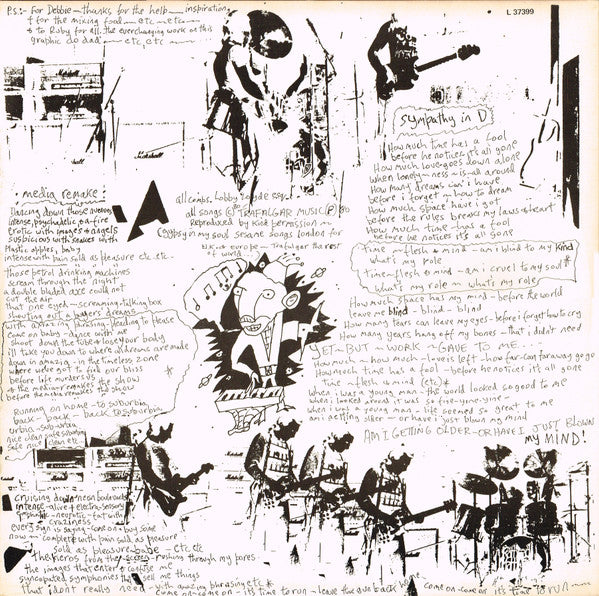 P.S:- For Debbie - thanks for the help - inspiration
& for the mixing food - etc - etc -
& to Ruby for all the everchanging work on this
graphic do dad - etc etc
L 37399
Marshall
sympathy in D
How much time has a fool
before he notices it's all gone
How much love goes down alone
when lonely - ness - is all around
How many dreams can i have
before i forget how to dream
How much space have i got
before the rules breaks my laws & heart
How much time has a fool
before he notices it's all gone
time - flesh & mind - am i blind to my kind
what's my role
time - flesh & mind - am i cruel to my soul *
what's my role - what's my role
How much space has my mind - before the world
leave me blind - blind - blind
How many tears can leave my eyes - before i forget how to cry
How many years hang off my bones - that i didn't need
YET - BUT - WORK - GAVE TO ME...
How much - how much - love is left - how far can faraway go go
How much time has a fool - before he notices it's all gone
time - flesh & mind (etc) *
when i was a young man - the world looked so good to me
when i looked around it was so fine - fine - fine -
when i was a young man - life seemed so great to me
am i getting older - or have i just blown my mind
AM I GETTING OLDER - OR HAVE I JUST BLOWN
MY MIND!
media remake:
Dancing down those avenues
intense, psychadelic, on-fire
erotic with images & angels
suspicious with snakes with
plastic styles, baby
intense with pain sold as pleasure etc. etc.
those petrol drinking machines
scream through the night
a double bladed axe could not
cut the air
that one eyed - screaming - talking box
shouting out a buyers dreams
with amazing phrasing - leading to please
im baking - dance with me
shoot down the tube & lose your body
ill take you down to where dreams are made
down in amazing - in the fantasy zone
where we've got to fix our bliss
before life murders
as the mediar remakes the show
before the media remakes the show
Running on home - to suburbia
back - back - back to suburbia
urbia - sub - urbia
nice clean safe suburbia
safe nice clean etc
all combs. Lobby Loyde esq.
all songs (C) TRAFALGAR MUSIC (P) 80
Reproduced by kind permission - ex
gypsy in my soul sesame songs london for
U.K. & Europe - Trafalgar the rest
of world
cruising down neon boulevards
intense - alive & electro-sensory
& shake - neurotic - fat with
craziness
every sign is saying - come on & buy some
now - complete with pain sold as pleasure!
sold as pleasure babe - etc. etc
the fierce from the screen - rushing through my pores
the images that enter & confuse me
syncopated symphonies that sell me things
that i dont really need - with amazing phrasing etc *
come on - come on - it's time to run - leave the gun back home
come on - come on it's time to run